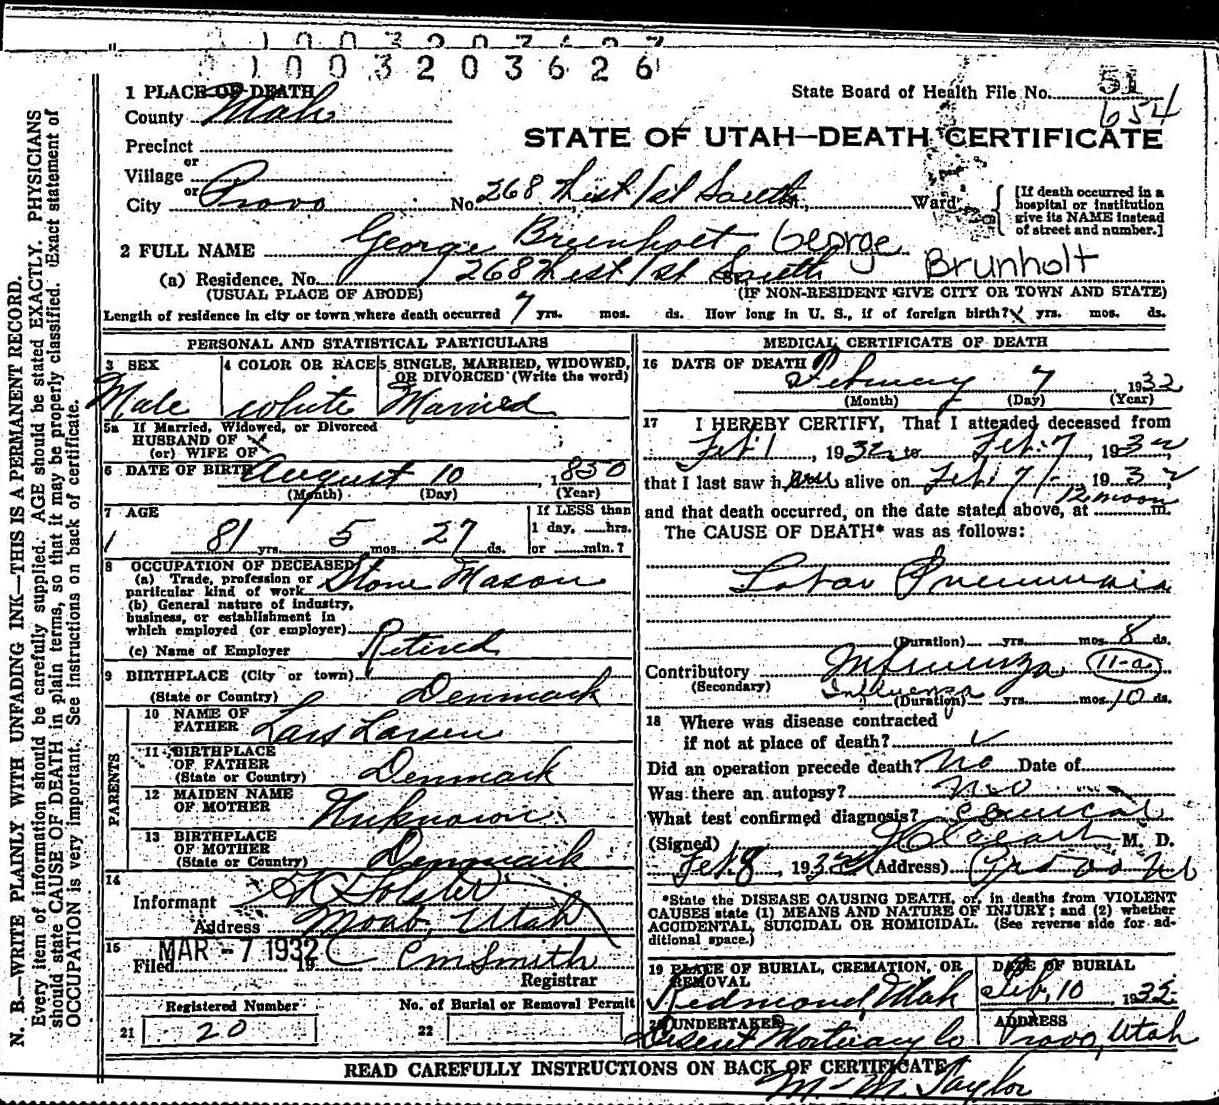 1 0 0 3 2 0 3 6 2 6
51
State Board of Health File No.
654
1 PLACE OF DEATH
County Utah
STATE OF UTAH—DEATH CERTIFICATE
Precinct
or
Village
or
City Provo No. 268 West 1st South St., Ward
[If death occurred in a
hospital or institution
give its NAME instead
of street and number.]
2 FULL NAME George Brunholt George Brunholt
(a) Residence, No. 268 West 1st South
(USUAL PLACE OF ABODE) (IF NON-RESIDENT GIVE CITY OR TOWN AND STATE)
Length of residence in city or town where death occurred 7 yrs. mos. ds. How long in U. S., if of foreign birth? yrs. mos. ds.
PERSONAL AND STATISTICAL PARTICULARS
3 SEX
Male
4 COLOR OR RACE
white
5 SINGLE, MARRIED, WIDOWED,
OR DIVORCED (Write the word)
Married
5a If Married, Widowed, or Divorced
HUSBAND OF
(or) WIFE OF
6 DATE OF BIRTH August 10, 1850
(Month) (Day) (Year)
7 AGE
81 yrs. 5 mos. 27 ds.
If LESS than
1 day, hrs.
or min.?
8 OCCUPATION OF DECEASED
(a) Trade, profession or
particular kind of work Stone Mason
(b) General nature of industry,
business, or establishment in
which employed (or employer)
(c) Name of Employer Retired
9 BIRTHPLACE (City or town)
(State or Country) Denmark
PARENTS
10 NAME OF
FATHER Lars Larsen
11 BIRTHPLACE
OF FATHER
(State or Country) Denmark
12 MAIDEN NAME
OF MOTHER Unknown
13 BIRTHPLACE
OF MOTHER
(State or Country) Denmark
14
Informant
Address Moab, Utah
15
Filed MAR -7 1932 19 C M Smith
Registrar
Registered Number
21 20
No. of Burial or Removal Permit
22
MEDICAL CERTIFICATE OF DEATH
16 DATE OF DEATH February 7 1932
(Month) (Day) (Year)
17 I HEREBY CERTIFY, That I attended deceased from
Feb. 1, 1932 to Feb. 7, 1932
that I last saw him alive on Feb. 7, 1932
and that death occurred, on the date stated above, at 12 noon m.
The CAUSE OF DEATH* was as follows:
Lobar Pneumonia
(Duration) yrs. mos. 8 ds.
Contributory Influenza 11-a
(Secondary) Influenza
(Duration) yrs. mos. 10 ds.
18 Where was disease contracted
if not at place of death?
Did an operation precede death? No Date of
Was there an autopsy? No
What test confirmed diagnosis? Clinical
(Signed) M. D.
Feb. 8, 1932 (Address) Provo Ut
*State the DISEASE CAUSING DEATH, or, in deaths from VIOLENT
CAUSES state (1) MEANS AND NATURE OF INJURY; and (2) whether
ACCIDENTAL, SUICIDAL OR HOMICIDAL. (See reverse side for ad-
ditional space.)
19 PLACE OF BURIAL, CREMATION, OR
REMOVAL
Redmond, Utah
DATE OF BURIAL
Feb. 10, 1932
20 UNDERTAKER
Deseret Mortuary Co
ADDRESS
Provo, Utah
READ CAREFULLY INSTRUCTIONS ON BACK OF CERTIFICATE
M. M. Taylor
N. B.—WRITE PLAINLY WITH UNFADING INK—THIS IS A PERMANENT RECORD.
Every item of information should be carefully supplied. AGE should be stated EXACTLY. PHYSICIANS
should state CAUSE OF DEATH in plain terms, so that it may be properly classified. Exact statement of
OCCUPATION is very important. See instructions on back of certificate.